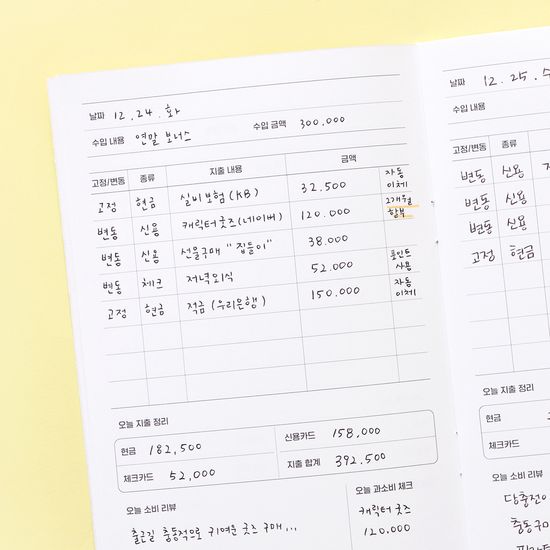 날짜 12.24.화
수입 내용 연말 보너스 수입 금액 300.000
고정/변동 종류 지출 내용 금액
고정 현금 실비보험(KB) 32.500 자동이체
변동 신용 캐릭터굿즈(네이버) 120.000 2개월 할부
변동 신용 선물구매 "집들이" 38.000
변동 체크 저녁외식 52.000 포인트 사용
고정 현금 적금(우리은행) 150.000 자동이체
오늘 지출 정리
현금 182,500 신용카드 158,000
체크카드 52,000 지출 합계 392,500
오늘 소비 리뷰 오늘 과소비 체크
출근길 충동적으로 귀여운 굿즈 구매... 캐릭터 굿즈
120.000
날짜 12.25.수
수입 내용
고정/변동 종류
변동 신용
변동 신용
변동 신용
고정 현금
오늘 지출 정리
현금
체크카드
오늘 소비 리뷰
당충전이
충동구매